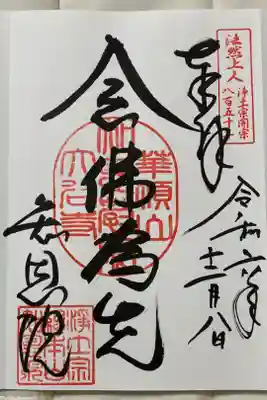 法然上人
浄土宗開宗
八百五十年
奉拝
令和六年
十二月八日
念佛為先
華頂山
大谷寺
知恩院
浄土宗
総本山
知恩院